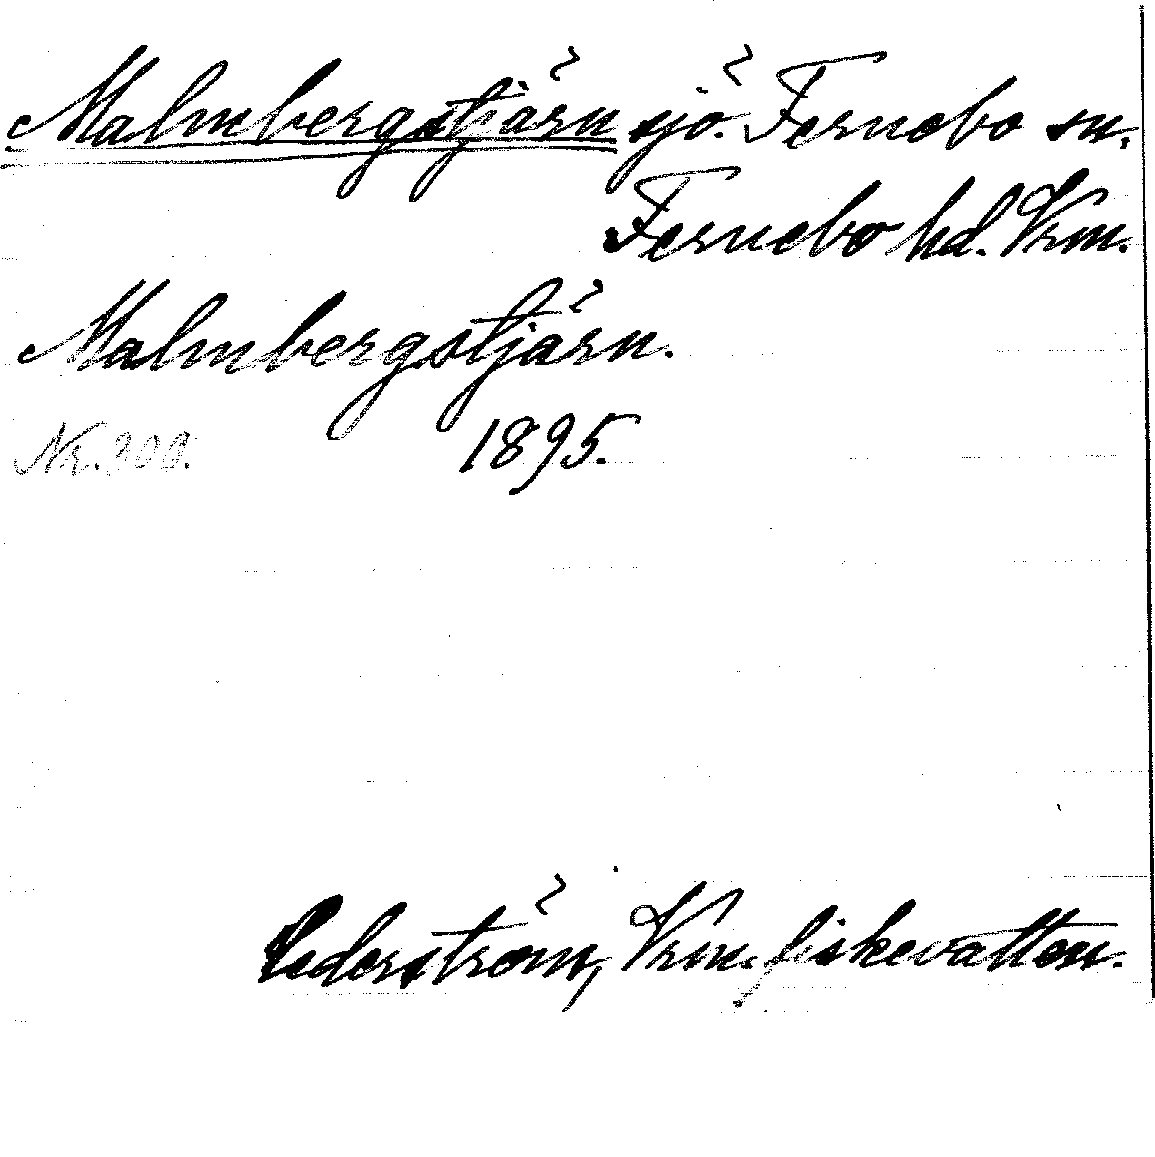 Malmbergstjärn sjö. Fernebo sn.
Fernebo hd. Vrm.
Malmbergstjärn.
Nr. 300. 1895.
Cederström, Vrm. fiskevatten.